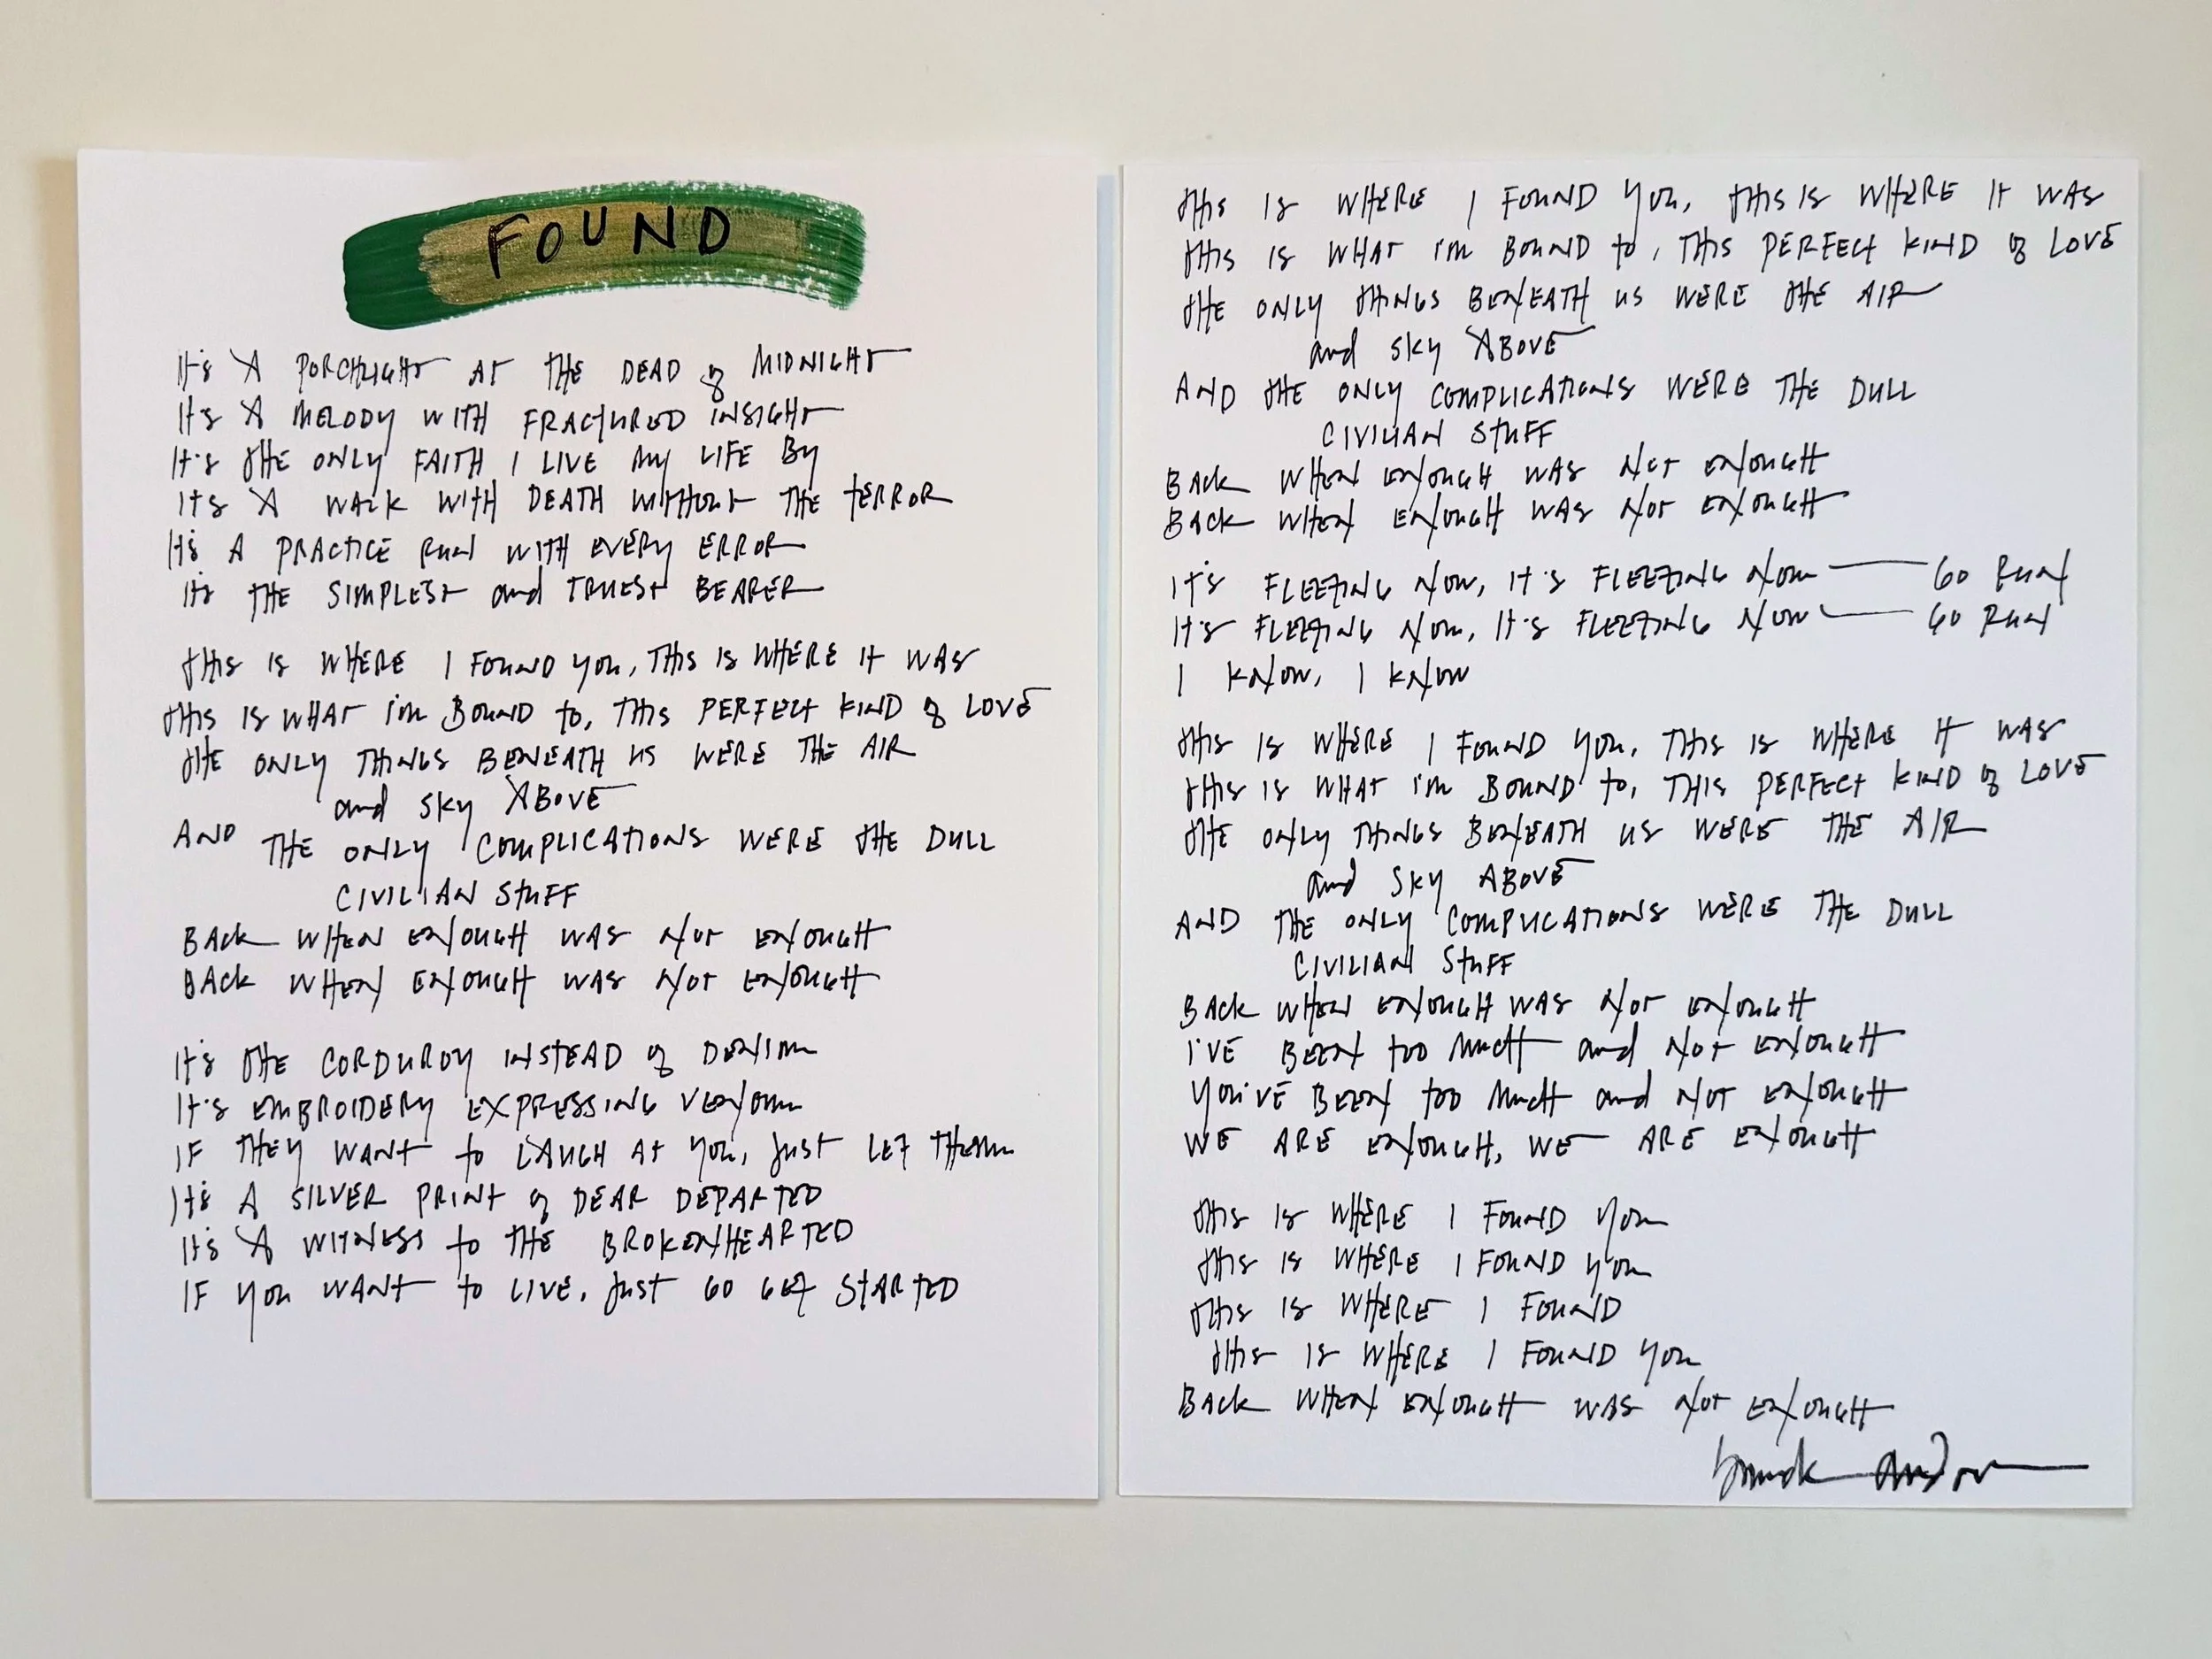 FOUND
It's A PORCHLIGHT AT THE DEAD of MIDNIGHT
It's A MELODY WITH FRACTURED INSIGHT
It's THE ONLY FAITH I LIVE MY LIFE BY
It's A WALK WITH DEATH WITHOUT THE TERROR
It's A PRACTICE RUN WITH EVERY ERROR
It's THE SIMPLEST and TRUEST BEARER
THIS IS WHERE I FOUND YOU, THIS IS WHERE IT WAS
THIS IS WHAT I'M BOUND to, THIS PERFECT KIND of LOVE
THE ONLY THINGS BENEATH US WERE THE AIR
and SKY ABOVE
AND THE ONLY COMPLICATIONS WERE THE DULL
CIVILIAN STUFF
BACK WHEN ENOUGH WAS NOT ENOUGH
BACK WHEN ENOUGH WAS NOT ENOUGH
It's THE CORDUROY INSTEAD of DENIM
It's EMBROIDERY EXPRESSING VENOM
IF THEY WANT to LAUGH AT YOU, JUST LET THEM
It's A SILVER PRINT of DEAR DEPARTED
It's A WITNESS to THE BROKENHEARTED
IF YOU WANT to LIVE, JUST GO GET STARTED
THIS IS WHERE I FOUND YOU, THIS IS WHERE IT WAS
THIS IS WHAT I'M BOUND to, THIS PERFECT KIND of LOVE
THE ONLY THINGS BENEATH US WERE THE AIR
and SKY ABOVE
AND THE ONLY COMPLICATIONS WERE THE DULL
CIVILIAN STUFF
BACK WHEN ENOUGH WAS NOT ENOUGH
BACK WHEN ENOUGH WAS NOT ENOUGH
It's FLEETING NOW, It's FLEETING NOW — GO RUN
It's FLEETING NOW, It's FLEETING NOW — GO RUN
I KNOW, I KNOW
THIS IS WHERE I FOUND YOU, THIS IS WHERE IT WAS
THIS IS WHAT I'M BOUND to, THIS PERFECT KIND of LOVE
THE ONLY THINGS BENEATH US WERE THE AIR
and SKY ABOVE
AND THE ONLY COMPLICATIONS WERE THE DULL
CIVILIAN STUFF
BACK WHEN ENOUGH WAS NOT ENOUGH
I'VE BEEN TOO MUCH and NOT ENOUGH
YOU'VE BEEN TOO MUCH and NOT ENOUGH
WE ARE ENOUGH, WE ARE ENOUGH
THIS IS WHERE I FOUND YOU
THIS IS WHERE I FOUND YOU
THIS IS WHERE I FOUND
THIS IS WHERE I FOUND YOU
BACK WHEN ENOUGH WAS NOT ENOUGH